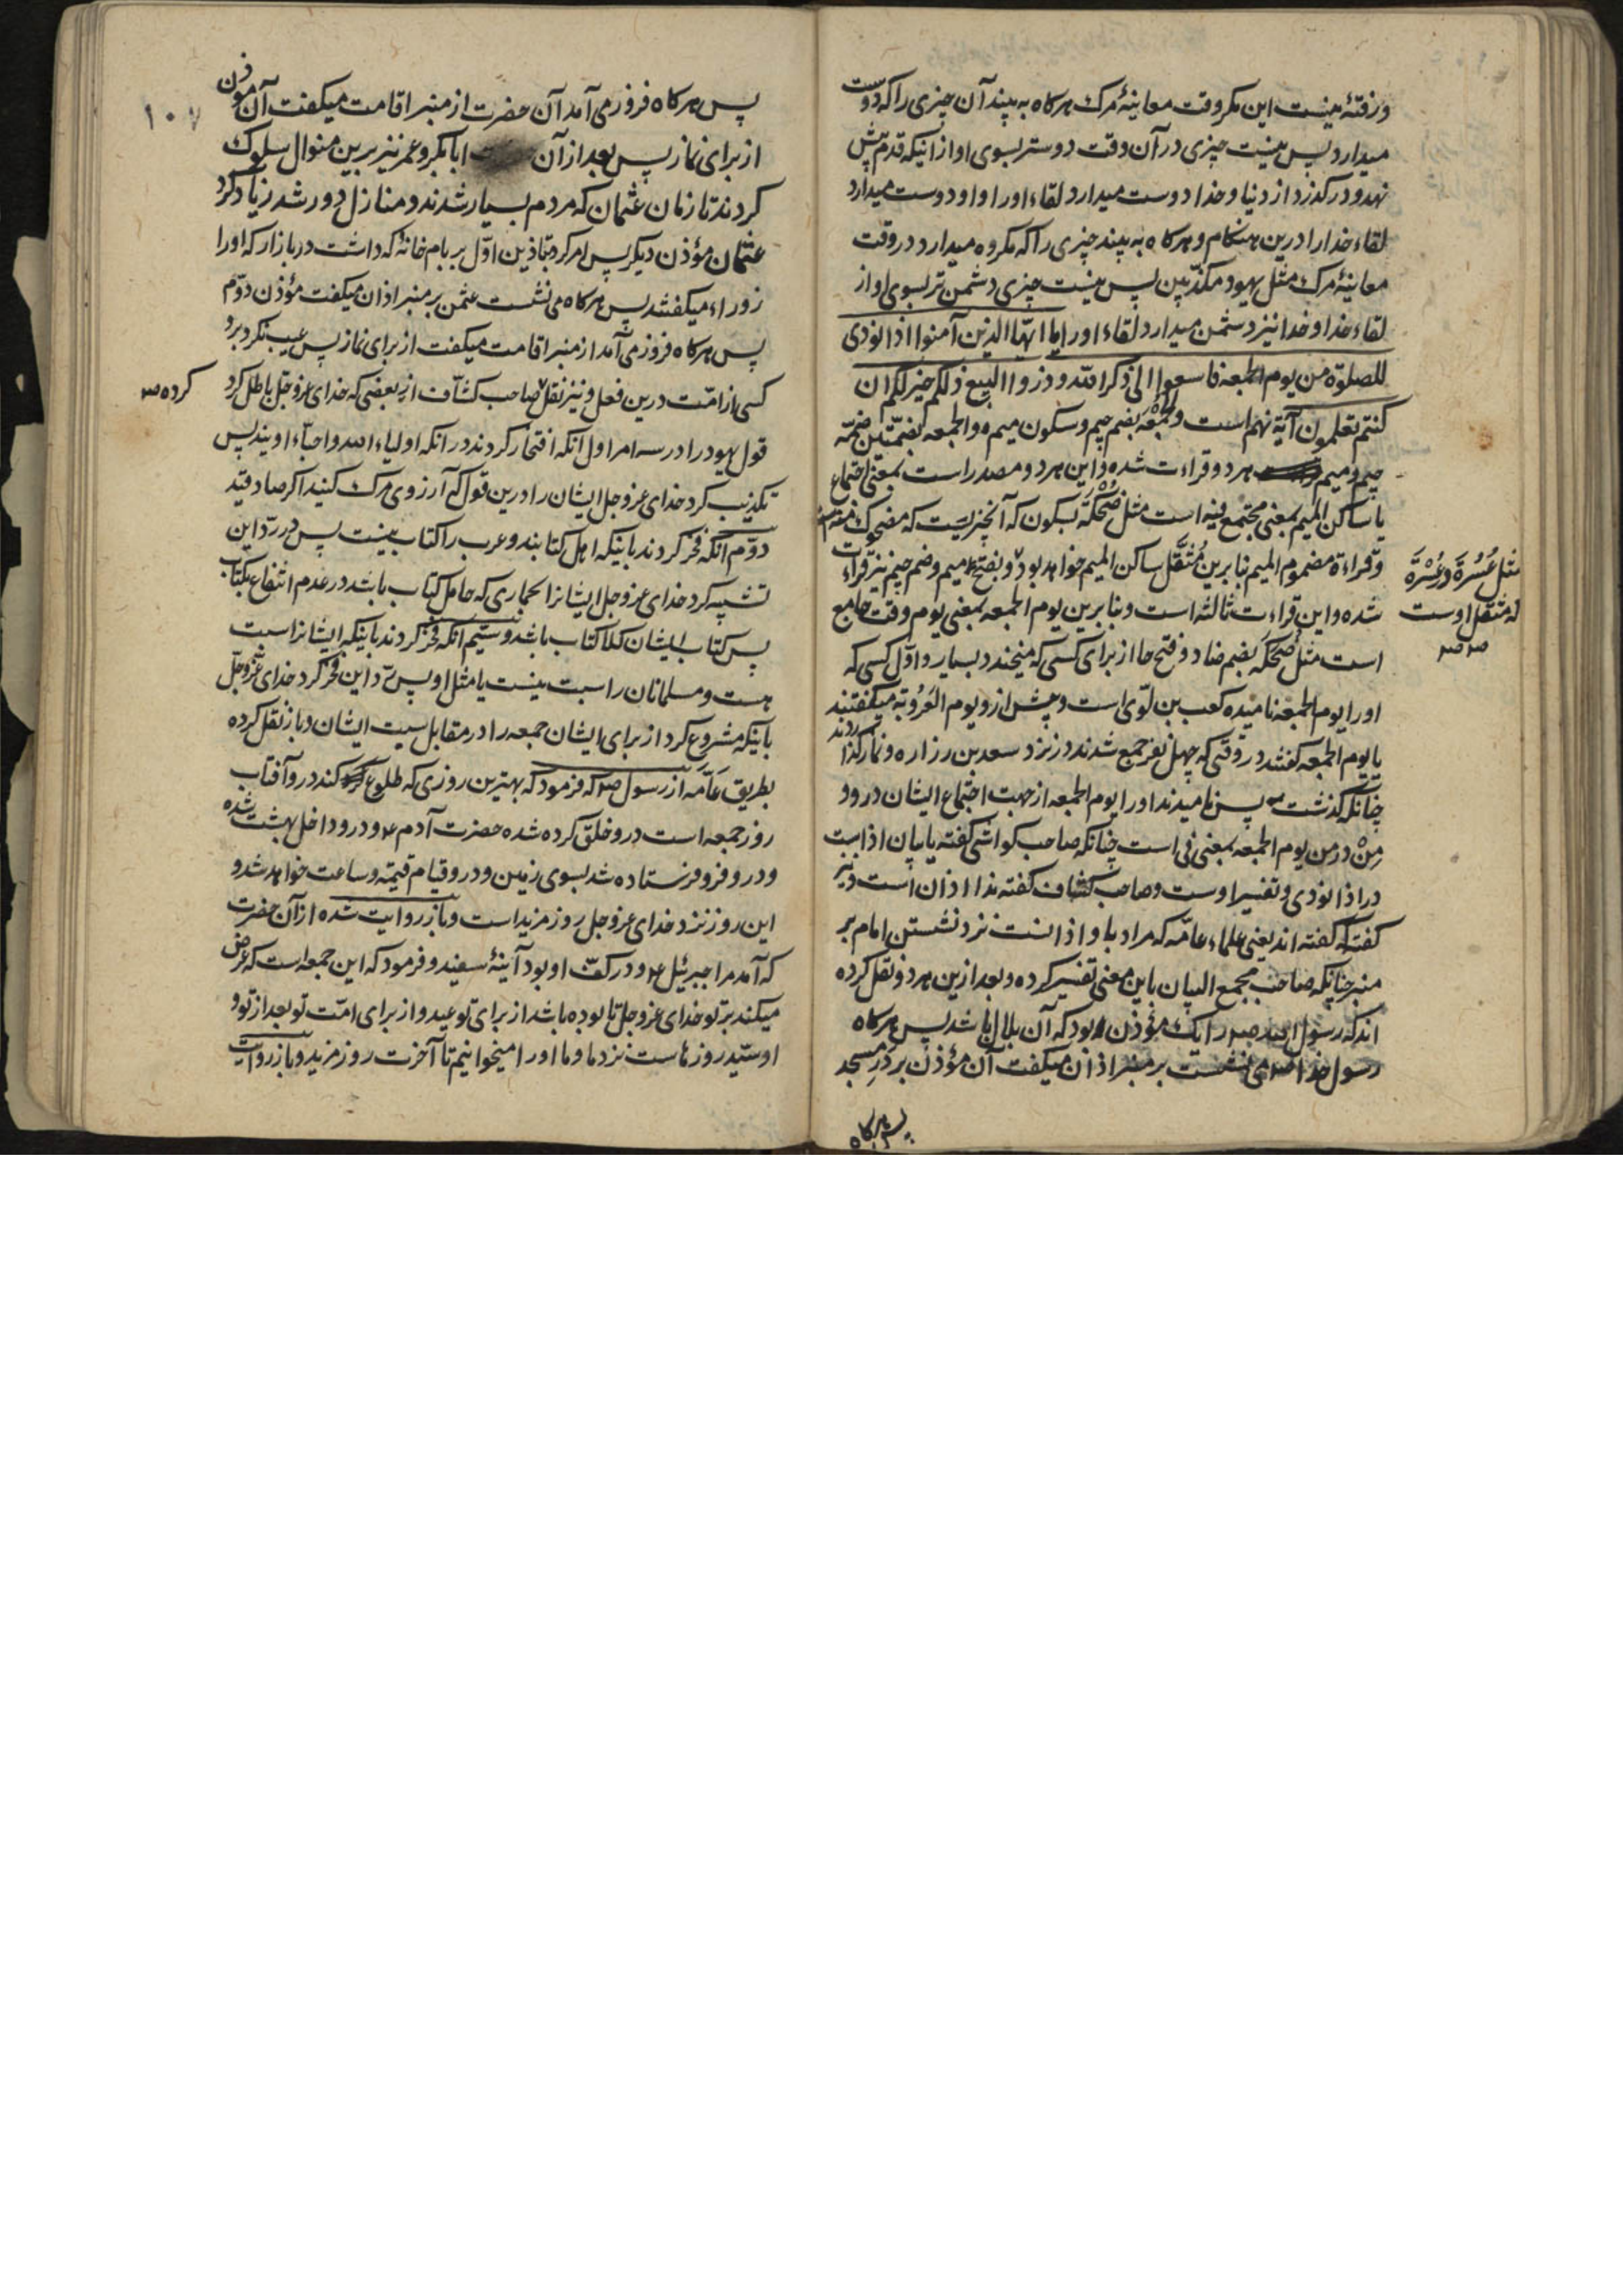 ورفتهٔ نیست این مکر وقت معاینهٔ مرک هرکاه به بیند آن چیزی را که دوست
میدارد پس نیست چیزی در آن وقت دوستر بسوی او از اینکه قدم پیش
نهد و درکذرد از دنیا و خدا دوست میدارد لقاء او را و او دوست میدارد
لقاء خدا را درین هنکام و هرکاه به بیند چیزی را که مکروه میدارد در وقت
معاینهٔ مرک مثل یهود مکذبین پس نیست چیزی دشمن تر بسوی او از
لقاء خدا و خدا نیز دشمن میدارد لقاء او را یا ایها الذین آمنوا اذا نودی
للصلوة من یوم الجمعة فاسعوا الی ذکر الله و ذروا البیع ذلکم خیر لکم ان
کنتم تعلمون آیهٔ نهم است والجُمْعَه بضم جیم و سکون میم و الجمعه بضمتین ضمّه
جیم و میم هر دو قراءت شده و این هر دو مصدر است بمعنی اجتماع
یا ساکن المیم بمعنی مجتمع فیه است مثل ضُحْکَه بسکون که آنچیزیست که مضحوک منه است
و قراءة مضموم المیم بنابرین مُثَقَّل ساکن المیم خواهد بود و بفتح میم و ضم جیم نیز قراءت
مثل عُسُرَة و عُسْرَة
شده و این قراءت ثالثه است و بنابرین یوم الجمعه بمعنی یوم وقت جامع
که مثقل اوست
است مثل ضُحَکَه بضم ضاد و فتح حا از برای کسی که میخندد بسیار و اوّل کسی که
او را یوم الجمعه نامیده کعب بن لوّی است و پیش ازو یوم العَرُوبَه میکفتند
یا یوم الجمعه کفتند در وقتی که چهل نفر جمع شدند در نزد سعد بن زراره و نماز کذاردند
چنانکه کذشت پس نامیدند او را یوم الجمعه از جهت اجتماع ایشان درو و
مِنْ در من یوم الجمعه بمعنی فی است چنانکه صاحب کواشی کفته یا بیان اذا است
در اذا نودی و تفسیر اوست و صاحب کشاف کفته ندا اذان است و نیز
کفته که کفته اند یعنی علماء عامّه که مراد باو اذانست نزد نشستن امام بر
منبر چنانکه صاحب مجمع البیان باین معنی تفسیر کرده و بعد ازین هر دو نقل کرده
اند که رسول الله را یک مؤذن بود که آن بلال باشد پس هرکاه
رسول خدا می نشست بر منبر اذان میکفت آن مؤذن بر درِ مسجد
پس هرکاه
۱۰۷
پس هرکاه فرود می آمد آن حضرت از منبر اقامت میکفت آن مؤذن
از برای نماز پس بعد از آن ابابکر و عمر نیز برین منوال سلوک
کردند تا زمان عثمان که مردم بسیار شدند و منازل دور شد زیاد کرد
عثمان مؤذن دیکر پس امر کرد بتاذین اوّل بر بام خانهٔ که داشت در بازار که او را
زوراء میکفتند پس هرکاه می نشست عثمن بر منبر اذان میکفت مؤذن دوّم
پس هرکاه فرود می آمد از منبر اقامت میکفت از برای نماز پس عیب نکرد برو
کسی از امّت درین فعل و نیز نقل صاحب کشّاف از بعضی که خدای عزوجل باطل کرد
کرده
قول یهود را در سه امر اول آنکه افتخار کردند در آنکه اولیاء الله و احبّاء اویند پس
تکذیب کرد خدای عزوجل ایشان را درین قول که آرزوی مرک کنید اکر صادقید
دوّم آنکه فخر کردند باینکه اهل کتابند و عرب را کتاب نیست پس در ردّ این
تشبیه کرد خدای عزوجل ایشانرا بحماری که حامل کتاب باشد در عدم انتفاع بکتاب
پس کتاب ایشان کلا کتاب باشد و سیّم آنکه فخر کردند باینکه ایشانرا سبت
هست و مسلمانان را سبت نیست یا مثل او پس ردّ این فخر کرد خدای عزّوجلّ
باینکه مشروع کرد از برای ایشان جمعه را در مقابل سبت ایشان و باز نقل کرده
بطریق عامّه از رسول که فرمود که بهترین روزی که طلوع کند درو آفتاب
روز جمعه است درو خلق کرده شده حضرت آدم و درو داخل بهشت شده
و درو فرو فرستاده شد بسوی زمین و درو قیام قیمة و ساعت خواهد شد و
این روز نزد خدای عزوجل روز مزید است و باز روایت شده از آن حضرت
که آمد مرا جبرئیل و در کفّ او بود آینهٔ سفید و فرمود که این جمعه است که عرض
میکند بر تو خدای عزوجل تا بوده باشد از برای تو عید و از برای امّت تو بعد از تو و
او سیّد روزهاست نزد ما و ما او را میخوانیم تا آخرت روز مزید و باز روایت